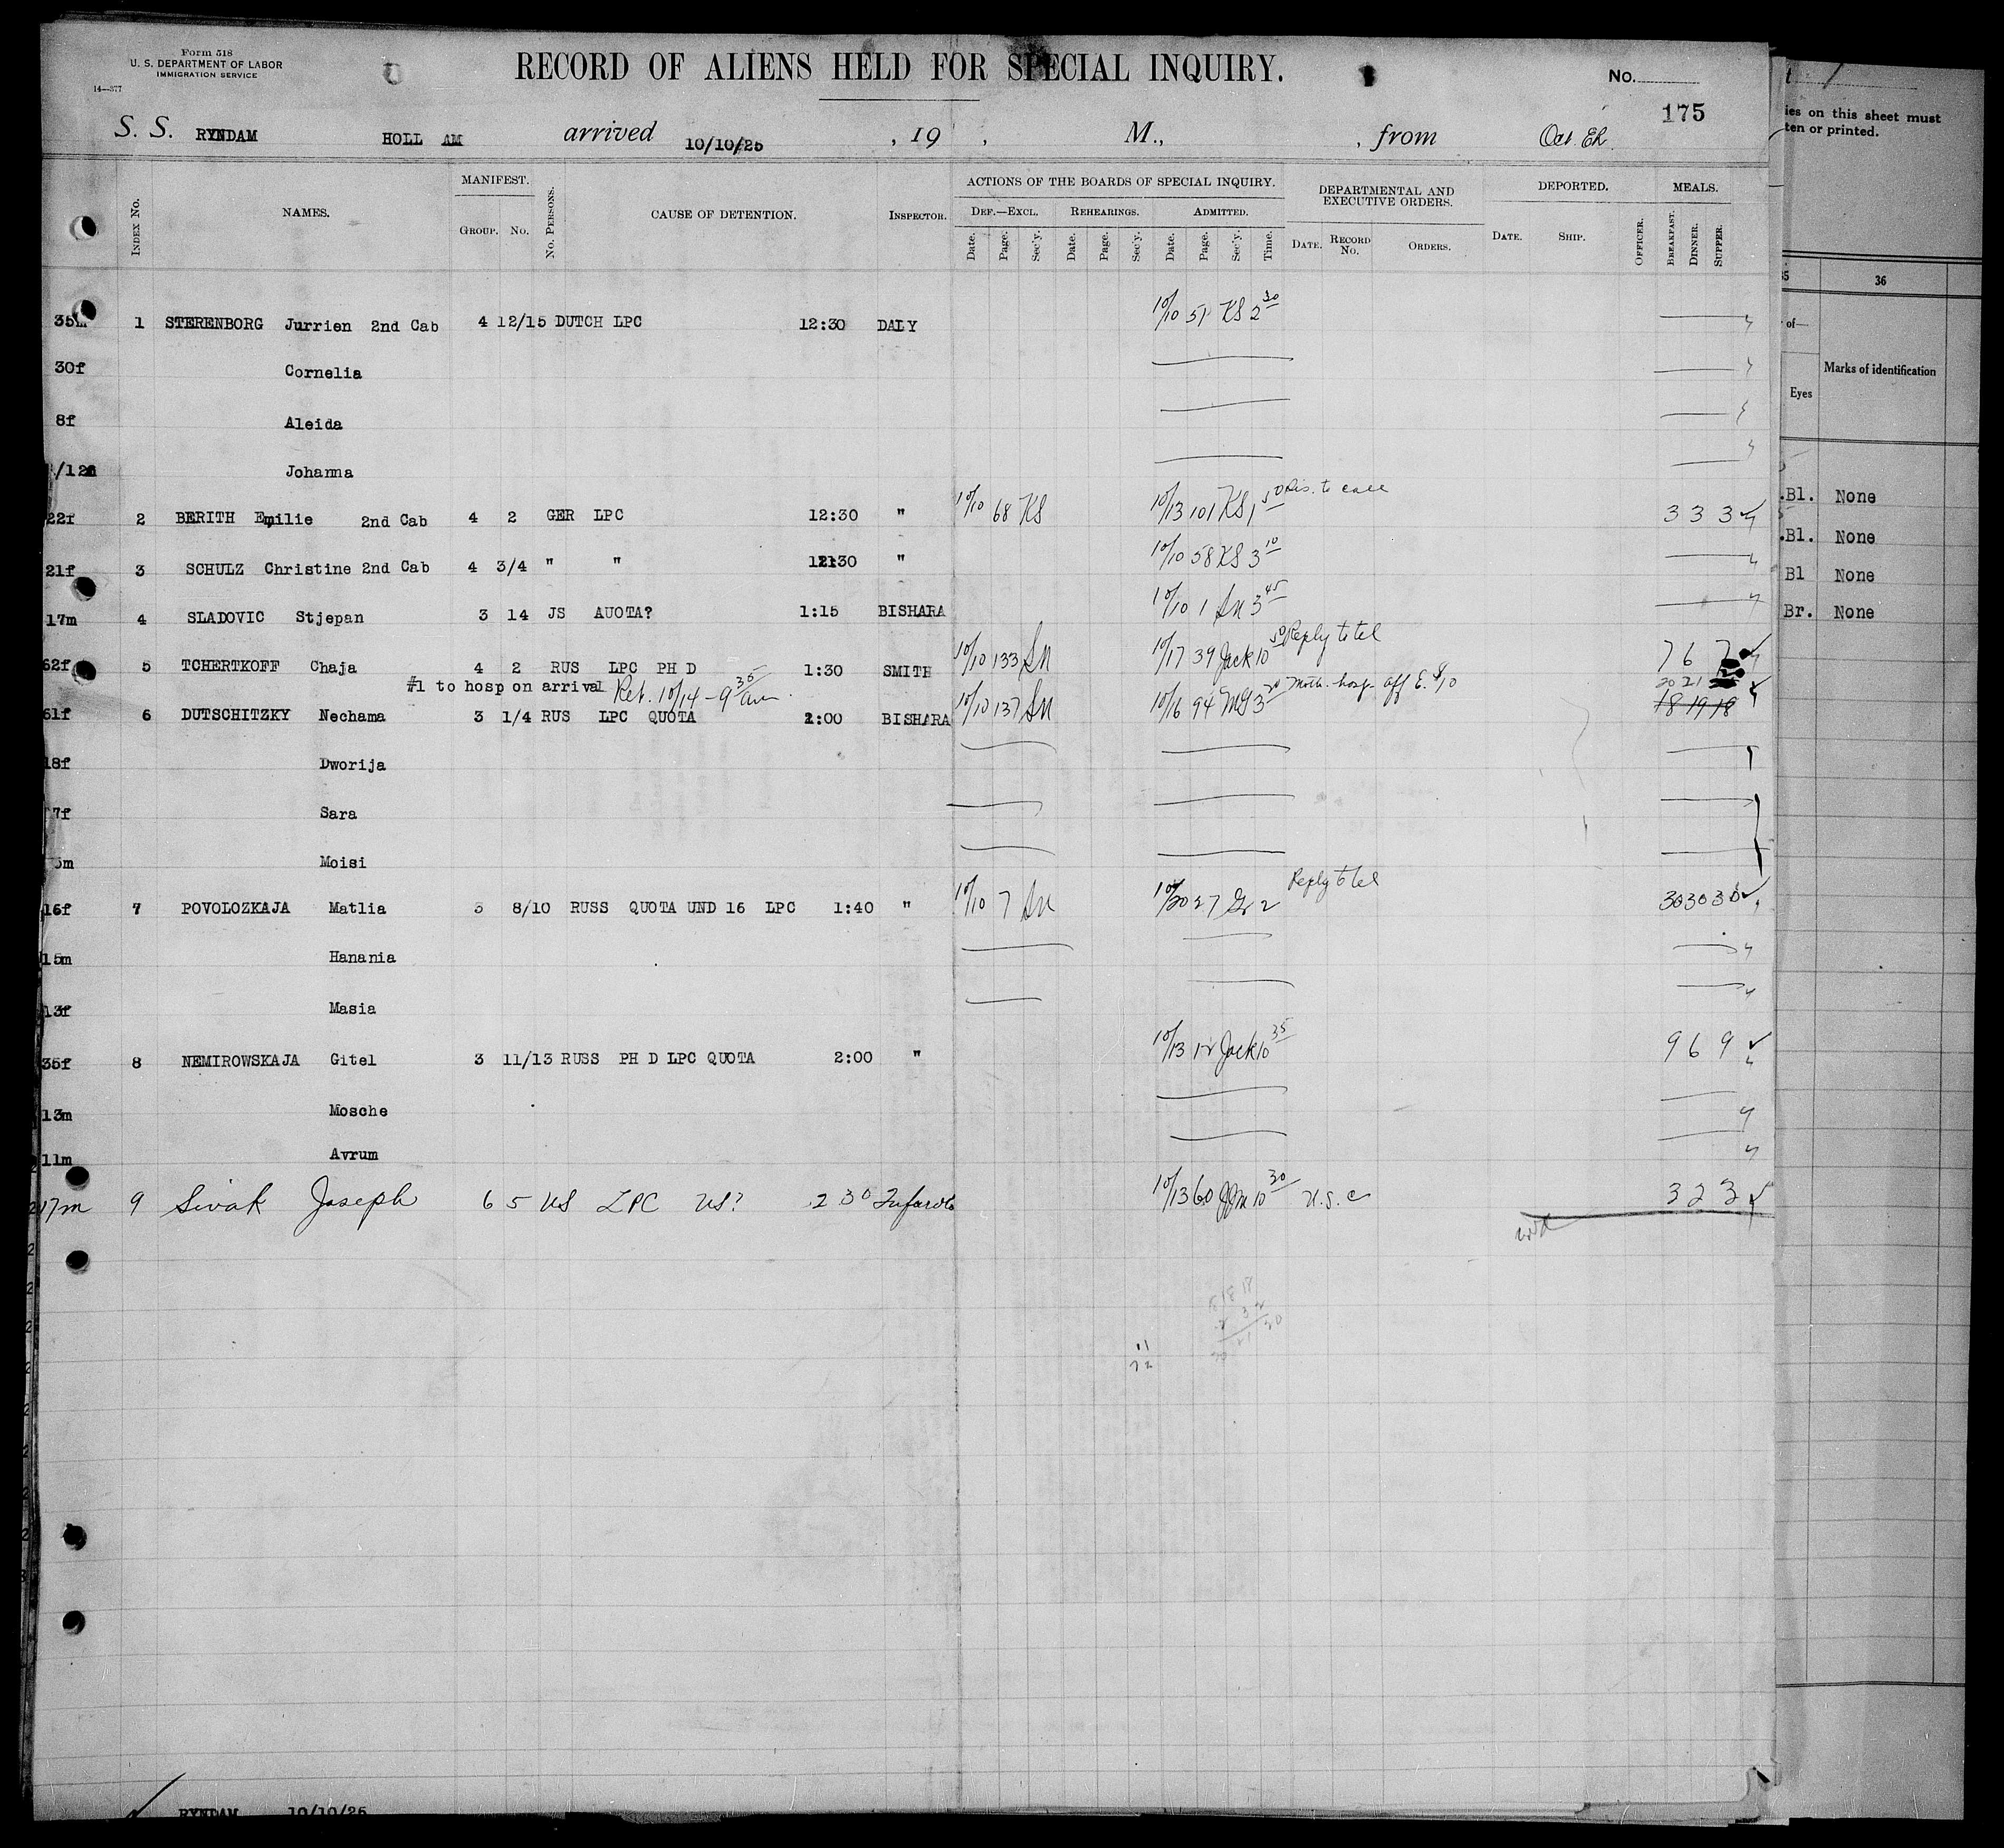 Form 518
U. S. DEPARTMENT OF LABOR
IMMIGRATION SERVICE
14—377
RECORD OF ALIENS HELD FOR SPECIAL INQUIRY.
No.
175
S. S. RYNDAM HOLL AM arrived 10/10/25 , 19 , M., , from
INDEX NO. NAMES. MANIFEST. GROUP. NO. NO. PERSONS. CAUSE OF DETENTION. INSPECTOR.
ACTIONS OF THE BOARDS OF SPECIAL INQUIRY.
DEF.—EXCL. REHEARINGS. ADMITTED.
Date. Page. Sec'y. Date. Page. Sec'y. Date. Page. Sec'y. Time.
DEPARTMENTAL AND EXECUTIVE ORDERS.
DATE. RECORD NO. ORDERS.
DEPORTED.
DATE. SHIP. OFFICER.
MEALS.
BREAKFAST. DINNER. SUPPER.
35m 1 STERENBORG Jurrien 2nd Cab 4 12/15 DUTCH LPC 12:30 DALY 10/10 51 KS 2 30
30f Cornelia
8f Aleida
Johanna
22f 2 BERITH Emilie 2nd Cab 4 2 GER LPC 12:30 " 10/10 68 KS 10/13 101 KS 1 50 3 3 3
21f 3 SCHULZ Christine 2nd Cab 4 3/4 " " 12:30 " 10/10 58 KS 3 10
17m 4 SLADOVIC Stjepan 3 14 JS AUOTA? 1:15 BISHARA 10/10 1 3 45
62f 5 TCHERTKOFF Chaja 4 2 RUS LPC PH D 1:30 SMITH 10/10 133 10/17 39 Jack 10 50 Reply to tel 7 6 7
#1 to hosp on arrival Ret. 10/14 - 9 35 am.
61f 6 DUTSCHITZKY Nechama 3 1/4 RUS LPC QUOTA 2:00 BISHARA 10/10 137 10/16 94 3 20 Moth. hosp 20 21 20
18 19 18
18f Dworija
7f Sara
Moisi
16f 7 POVOLOZKAJA Matlia 3 8/10 RUSS QUOTA UND 16 LPC 1:40 " 10/10 7 10/20 27 2 Reply to tel 30 30 30
15m Hanania
13f Masia
35f 8 NEMIROWSKAJA Gitel 3 11/13 RUSS PH D LPC QUOTA 2:00 " 10/13 12 Jack 10 35 9 6 9
13m Mosche
11m Avrum
17m 9 Sivak Joseph 6 5 US LPC US? 2 30 10/13 60 10 30 U.S.C 3 2 3
RYNDAM 10/10/25
ies on this sheet must
ten or printed.
36
of—
Eyes
Marks of identification
Bl. None
Bl. None
Bl None
Br. None